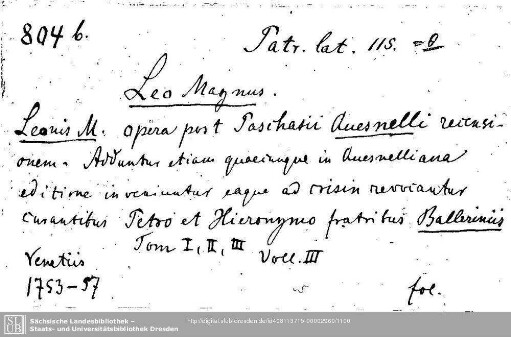 804 b.
Patr. lat. 115.
Leo Magnus.
Leonis M. opera post Paschasii Quesnelli recensi-
onem. Adduntur etiam quaecumque in Quesnelliana
editione inveniuntur eaque ad crisin revocantur
curantibus Petro et Hieronymo fratribus Balleriniis
Tom I, II, III Voll. III
Venetiis
1753-57 fol.
SLUB
Sächsische Landesbibliothek –
Staats- und Universitätsbibliothek Dresden